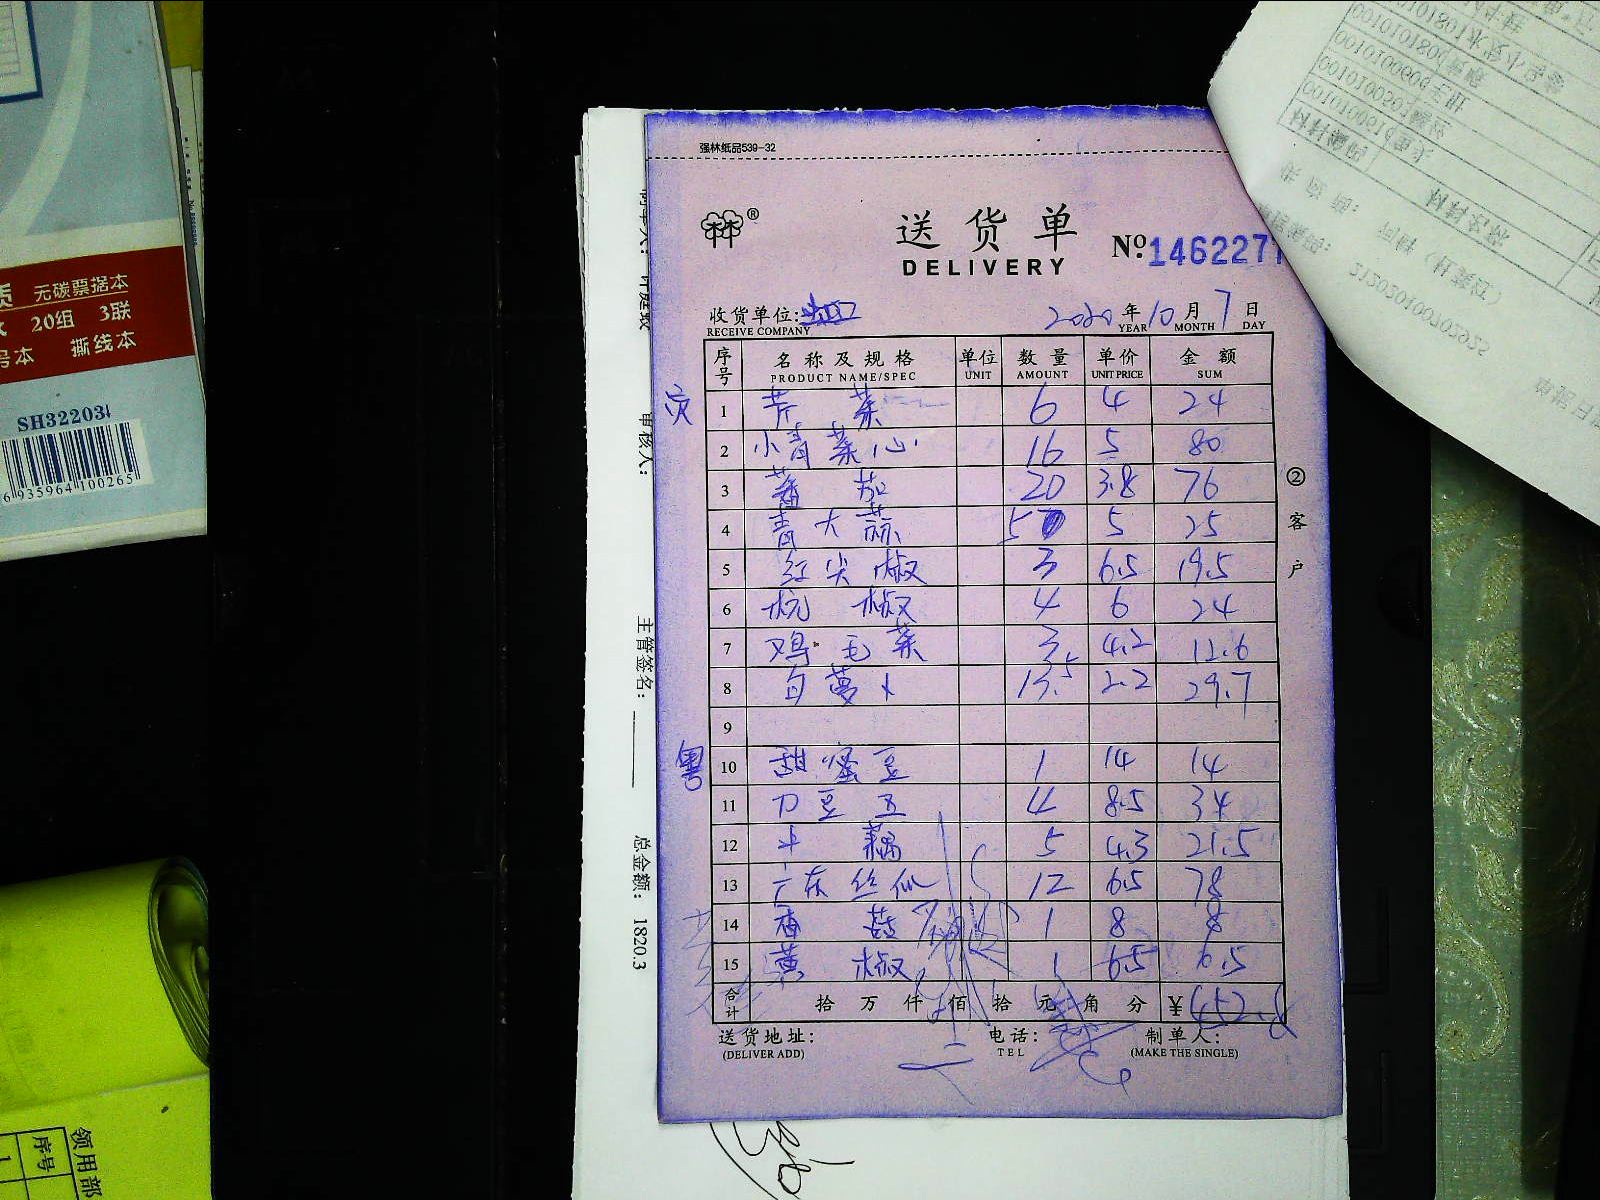 强林纸品539-32
®
送货单
DELIVERY
Nº:1462277
收货单位:
RECEIVE COMPANY
2020年10月7日
YEAR MONTH DAY
序号 名称及规格 单位 数量 单价 金额
PRODUCT NAME/SPEC UNIT AMOUNT UNIT PRICE SUM
1 芹菜 6 4 24
2 小青菜心 16 5 80
3 蕃茄 20 3.8 76
4 青大蒜 5 5 25
5 红尖椒 3 6.5 19.5
6 杭椒 4 6 24
7 鸡毛菜 3 4.2 12.6
8 白萝卜 13.5 2.2 29.7
9
粤
10 甜蜜豆 1 14 14
11 刀豆 4 8.5 34
12 藕 5 4.3 21.5
13 广东丝瓜 12 6.5 78
14 香菇 1 8 8
15 黄椒 1 6.5 6.5
合计 拾万仟佰拾元角分 ¥
送货地址:
(DELIVER ADD)
电话:
TEL
制单人:
(MAKE THE SINGLE)
②客户
审核人:
主管签名:
总金额: 1820.3
无碳票据本
20组 3联
撕线本
SH32203
6 935964 100265
领用部
序号
1